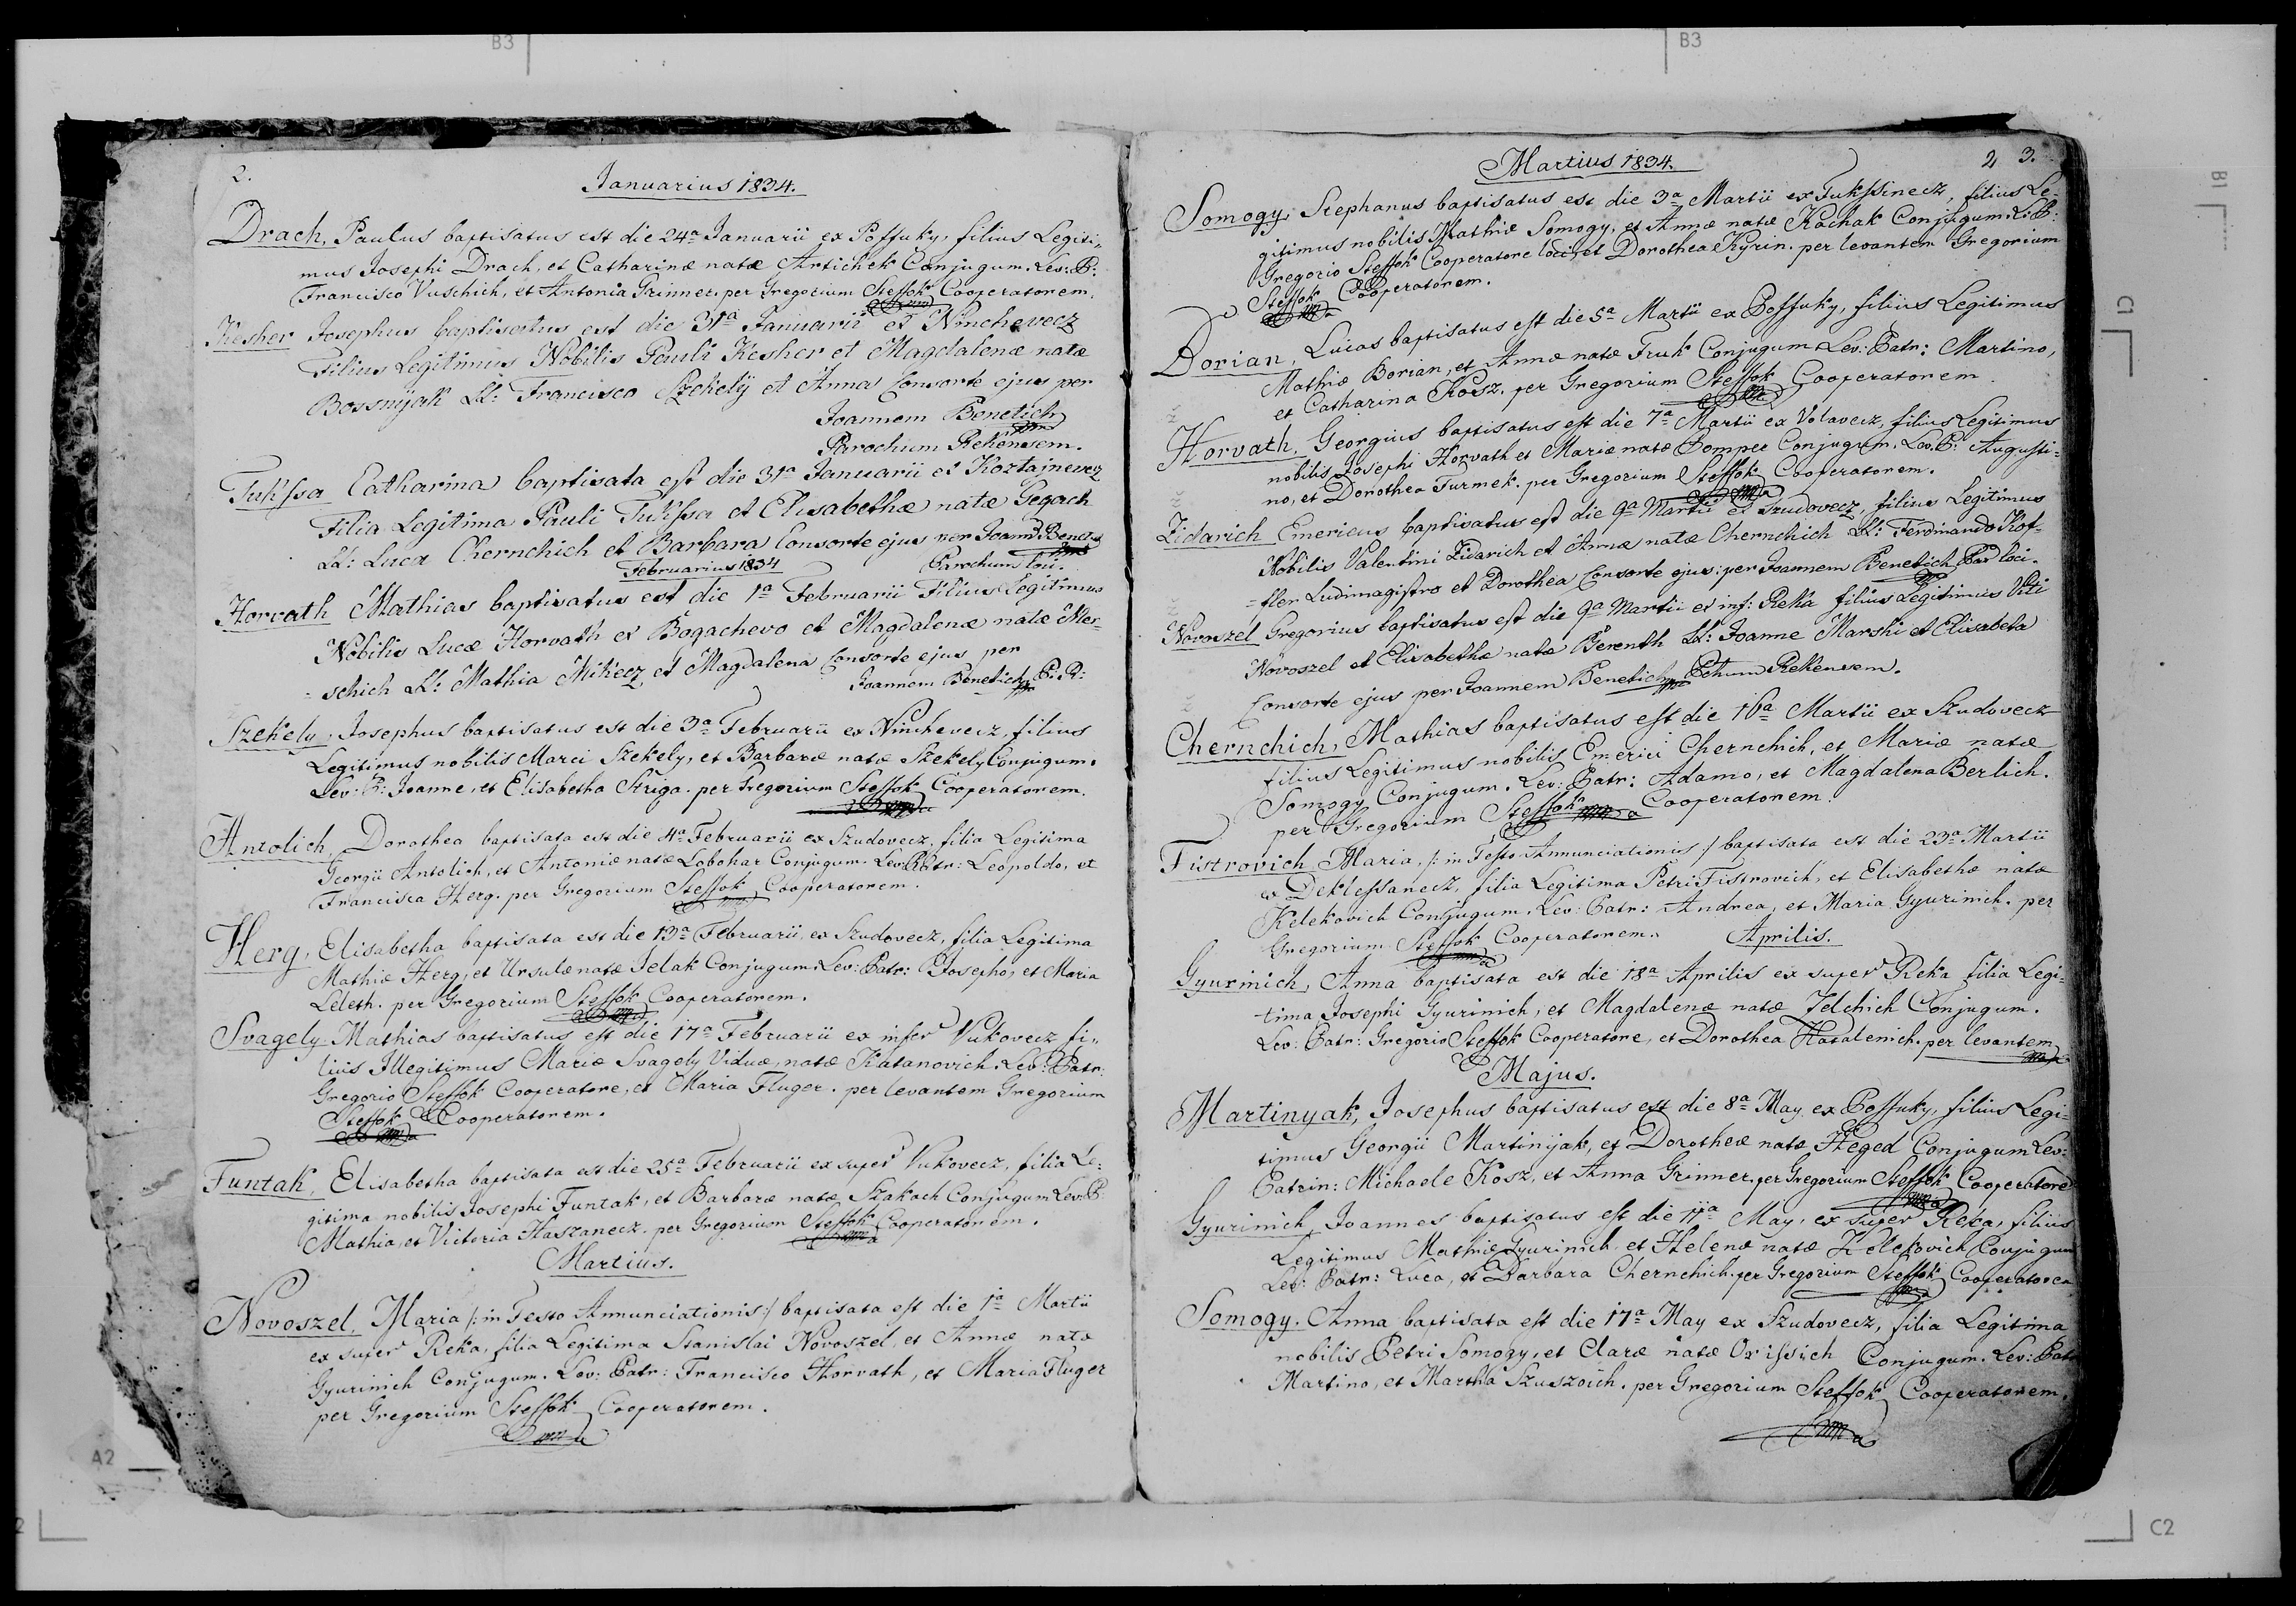 B3
B3
B1
C1
A2
C2
2.
Januarius 1834.
Drach, Paulus baptisatus est die 24a Januarii ex Possuky, filius Legiti-
mus Josephi Drach, et Catharinæ natæ Artichek Conjugum. Lev: P:
Francisco Vuschich, et Antonia Grinner. per Gregorium Steffok Cooperatorem.
Kesher Josephus baptisatus est die 31a Januarii ex Ninchevecz
Filius Legitimus Nobilis Pauli Kesher et Magdalenæ natæ
Bossnyak LL: Francisco Szekely et Anna Consorte ejus per
Joannem Benetich
Parochum Rekensem.
Tukssa Catharina baptisata est die 31a Januarii ex Koztajnevecz
Filia Legitima Pauli Tukssa et Elisabethæ natæ Gegach
LL: Luca Chernchich et Barbara Consorte ejus per Joann:
Parochum loci.
Februarius 1834
Horvath Mathias baptisatus est die 1a Februarii Filius Legitimus
Nobilis Lucæ Horvath ex Bogachevo et Magdalenæ natæ Mes-
-schich LL: Mathia Mihecz et Magdalena Consorte ejus per
Joannem Benetich P. R:
Szekely, Josephus baptisatus est die 3a Februarii ex Ninchevecz, filius
Legitimus nobilis Marci Szekely, et Barbaræ natæ Szekely Conjugum.
Lev: P: Joanne, et Elisabetha Struga. per Gregorium Steffok Cooperatorem.
Antolich, Dorothea baptisata est die 4a Februarii ex Szudovecz, filia Legitima
Georgii Antolich, et Antoniæ natæ Lobohar Conjugum. Lev: Patr: Leopoldo, et
Francisca Herg. per Gregorium Steffok Cooperatorem.
Herg, Elisabetha baptisata est die 13a Februarii, ex Szudovecz, filia Legitima
Mathiæ Herg, et Ursulæ natæ Jelak Conjugum. Lev: Patr: Josepho, et Maria
Leleth. per Gregorium Steffok Cooperatorem.
Svagely Mathias baptisatus est die 17a Februarii ex infer Vukovecz fi-
lius Illegitimus Mariæ Svagely Viduæ, natæ Katanovich. Lev: Patr:
Gregorio Steffok Cooperatore, et Maria Fluger. per levantem Gregorium
Steffok Cooperatorem.
Funtak, Elisabetha baptisata est die 25a Februarii ex super Vukovecz, filia Le-
gitima nobilis Josephi Funtak, et Barbaræ natæ Szakach Conjugum Lev: P:
Mathia, et Victoria Haszanecz. per Gregorium Steffok Cooperatorem.
Martius.
Novoszel, Maria /: in Festo Annunciationis :/ baptisata est die 1a Martii
ex super Reka, filia Legitima Stanislai Novoszel, et Annæ natæ
Gyurinich Conjugum. Lev: Patr: Francisco Horvath, et Maria Fluger
per Gregorium Steffok Cooperatorem.
Martius 1834.
2 3.
Somogy, Stephanus baptisatus est die 3a Martii ex Tukssinecz, filius Le-
gitimus nobilis Mathiæ Somogy, et Annæ natæ Kachak Conjugum. L: P:
Gregorio Steffok Cooperatore loci, et Dorothea Kyrin. per levantem Gregorium
Steffok Cooperatorem.
Dorian, Lucas baptisatus est die 5a Martii ex Possuky, filius Legitimus
Mathiæ Borian, et Annæ natæ Fruk Conjugum. Lev: Patr: Martino,
et Catharina Kosz. per Gregorium Steffok Cooperatorem.
Horvath, Georgius baptisatus est die 7a Martii ex Volavecz, filius Legitimus
nobilis Josephi Horvath et Mariæ natæ Pomper Conjugum. Lev: P: Augusti-
no, et Dorothea Turmek. per Gregorium Steffok Cooperatorem.
Zidarich Emericus baptisatus est die 9a Martii ex Szudovecz, filius Legitimus
Nobilis Valentini Zidarich et Annæ natæ Chernchich LL: Ferdinando Kof-
-fler Ludimagistro et Dorothea Consorte ejus: per Joannem Benetich Par loci.
Novoszel Gregorius baptisatus est die 9a Martii ex inf: Reka filius Legitimus Viti
Novoszel et Elisabethæ natæ Berenth LL: Joanne Marshi et Elisabeta
Consorte ejus per Joannem Benetich Pchum Rekensem.
Chernchich, Mathias baptisatus est die 16a Martii ex Szudovecz
filius Legitimus nobilis Emerici Chernchich, et Mariæ natæ
Somogy Conjugum. Lev: Patr: Adamo, et Magdalena Berlich.
per Gregorium Steffok Cooperatorem.
Fistrovich Maria, /: in Festo Annunciationis :/ baptisata est die 23a Martii
ex Deklessanecz, filia Legitima Petri Fistrovich, et Elisabethæ natæ
Kelekovich Conjugum. Lev: Patr: Andrea, et Maria Gyurinich. per
Gregorium Steffok Cooperatorem.
Aprilis.
Gyurinich, Anna baptisata est die 18a Aprilis ex super Reka filia Legi-
tima Josephi Gyurinich, et Magdalenæ natæ Jelchich Conjugum.
Lev: Patr: Gregorio Steffok Cooperatore, et Dorothea Hatalenich. per levantem
Majus.
Martinyak, Josephus baptisatus est die 8a May, ex Possuky, filius Legi-
timus Georgii Martinyak, et Dorotheæ natæ Heged Conjugum Lev:
Patrin: Michaele Kosz, et Anna Grinner. per Gregorium Steffok Cooperatore
Gyurinich, Joannes baptisatus est die 11a May, ex super Reka, filius
Legitimus Mathiæ Gyurinich, et Helenæ natæ Kelekovich Conjugum
Lev: Patr: Luca, et Barbara Chernchich. per Gregorium Steffok Cooperatorem
Somogy. Anna baptisata est die 17a May ex Szudovecz, filia Legitima
nobilis Petri Somogy, et Claræ natæ Orissich Conjugum. Lev: Patr
Martino, et Martha Szuszoich. per Gregorium Steffok Cooperatorem.